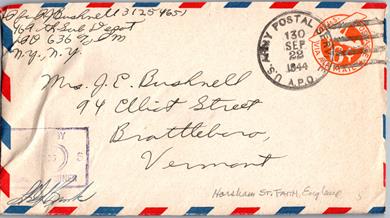 Bushnell 31254651
469th Sub Depot
APO 636
N.Y., N.Y.
U.S. ARMY POSTAL SERVICE
130
SEP
22
1944
A.P.O.
VIA AIR MAIL
6¢
Mrs. J. E. Bushnell
94 Elliot Street
Brattleboro,
Vermont
Horsham St. Faith, England